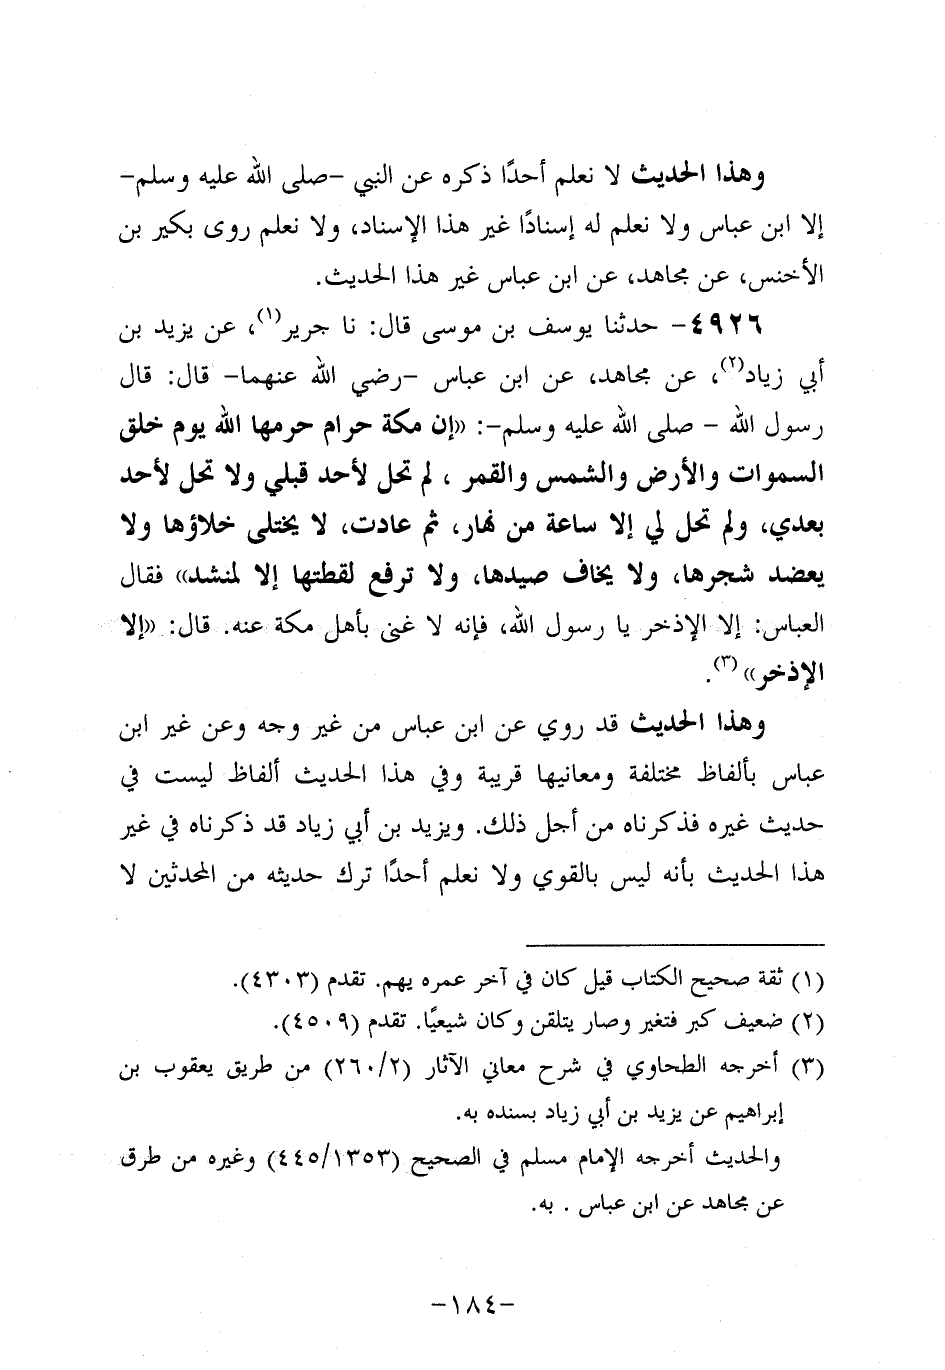 وهذا الحديث لا نعلم أحدًا ذكره عن النبي –صلى الله عليه وسلم–
إلا ابن عباس ولا نعلم له إسنادًا غير هذا الإسناد، ولا نعلم روى بكير بن
الأخنس، عن مجاهد، عن ابن عباس غير هذا الحديث.
٤٩٢٦– حدثنا يوسف بن موسى قال: نا جرير(١)، عن يزيد بن
أبي زياد(٢)، عن مجاهد، عن ابن عباس –رضي الله عنهما– قال: قال
رسول الله – صلى الله عليه وسلم–: «إن مكة حرام حرمها الله يوم خلق
السموات والأرض والشمس والقمر ، لم تحل لأحد قبلي ولا تحل لأحد
بعدي، ولم تحل لي إلا ساعة من نهار، ثم عادت، لا يختلى خلاؤها ولا
يعضد شجرها، ولا يخاف صيدها، ولا ترفع لقطتها إلا لمنشد» فقال
العباس: إلا الإذخر يا رسول الله، فإنه لا غنى بأهل مكة عنه. قال: «إلا
الإذخر»(٣).
وهذا الحديث قد روي عن ابن عباس من غير وجه وعن غير ابن
عباس بألفاظ مختلفة ومعانيها قريبة وفي هذا الحديث ألفاظ ليست في
حديث غيره فذكرناه من أجل ذلك. ويزيد بن أبي زياد قد ذكرناه في غير
هذا الحديث بأنه ليس بالقوي ولا نعلم أحدًا ترك حديثه من المحدثين لا
(١) ثقة صحيح الكتاب قيل كان في آخر عمره يهم. تقدم (٤٣٠٣).
(٢) ضعيف كبر فتغير وصار يتلقن وكان شيعيًا. تقدم (٤٥٠٩).
(٣) أخرجه الطحاوي في شرح معاني الآثار (٢٦٠/٢) من طريق يعقوب بن
إبراهيم عن يزيد بن أبي زياد بسنده به.
والحديث أخرجه الإمام مسلم في الصحيح (٤٤٥/١٣٥٣) وغيره من طرق
عن مجاهد عن ابن عباس . به.
–١٨٤–